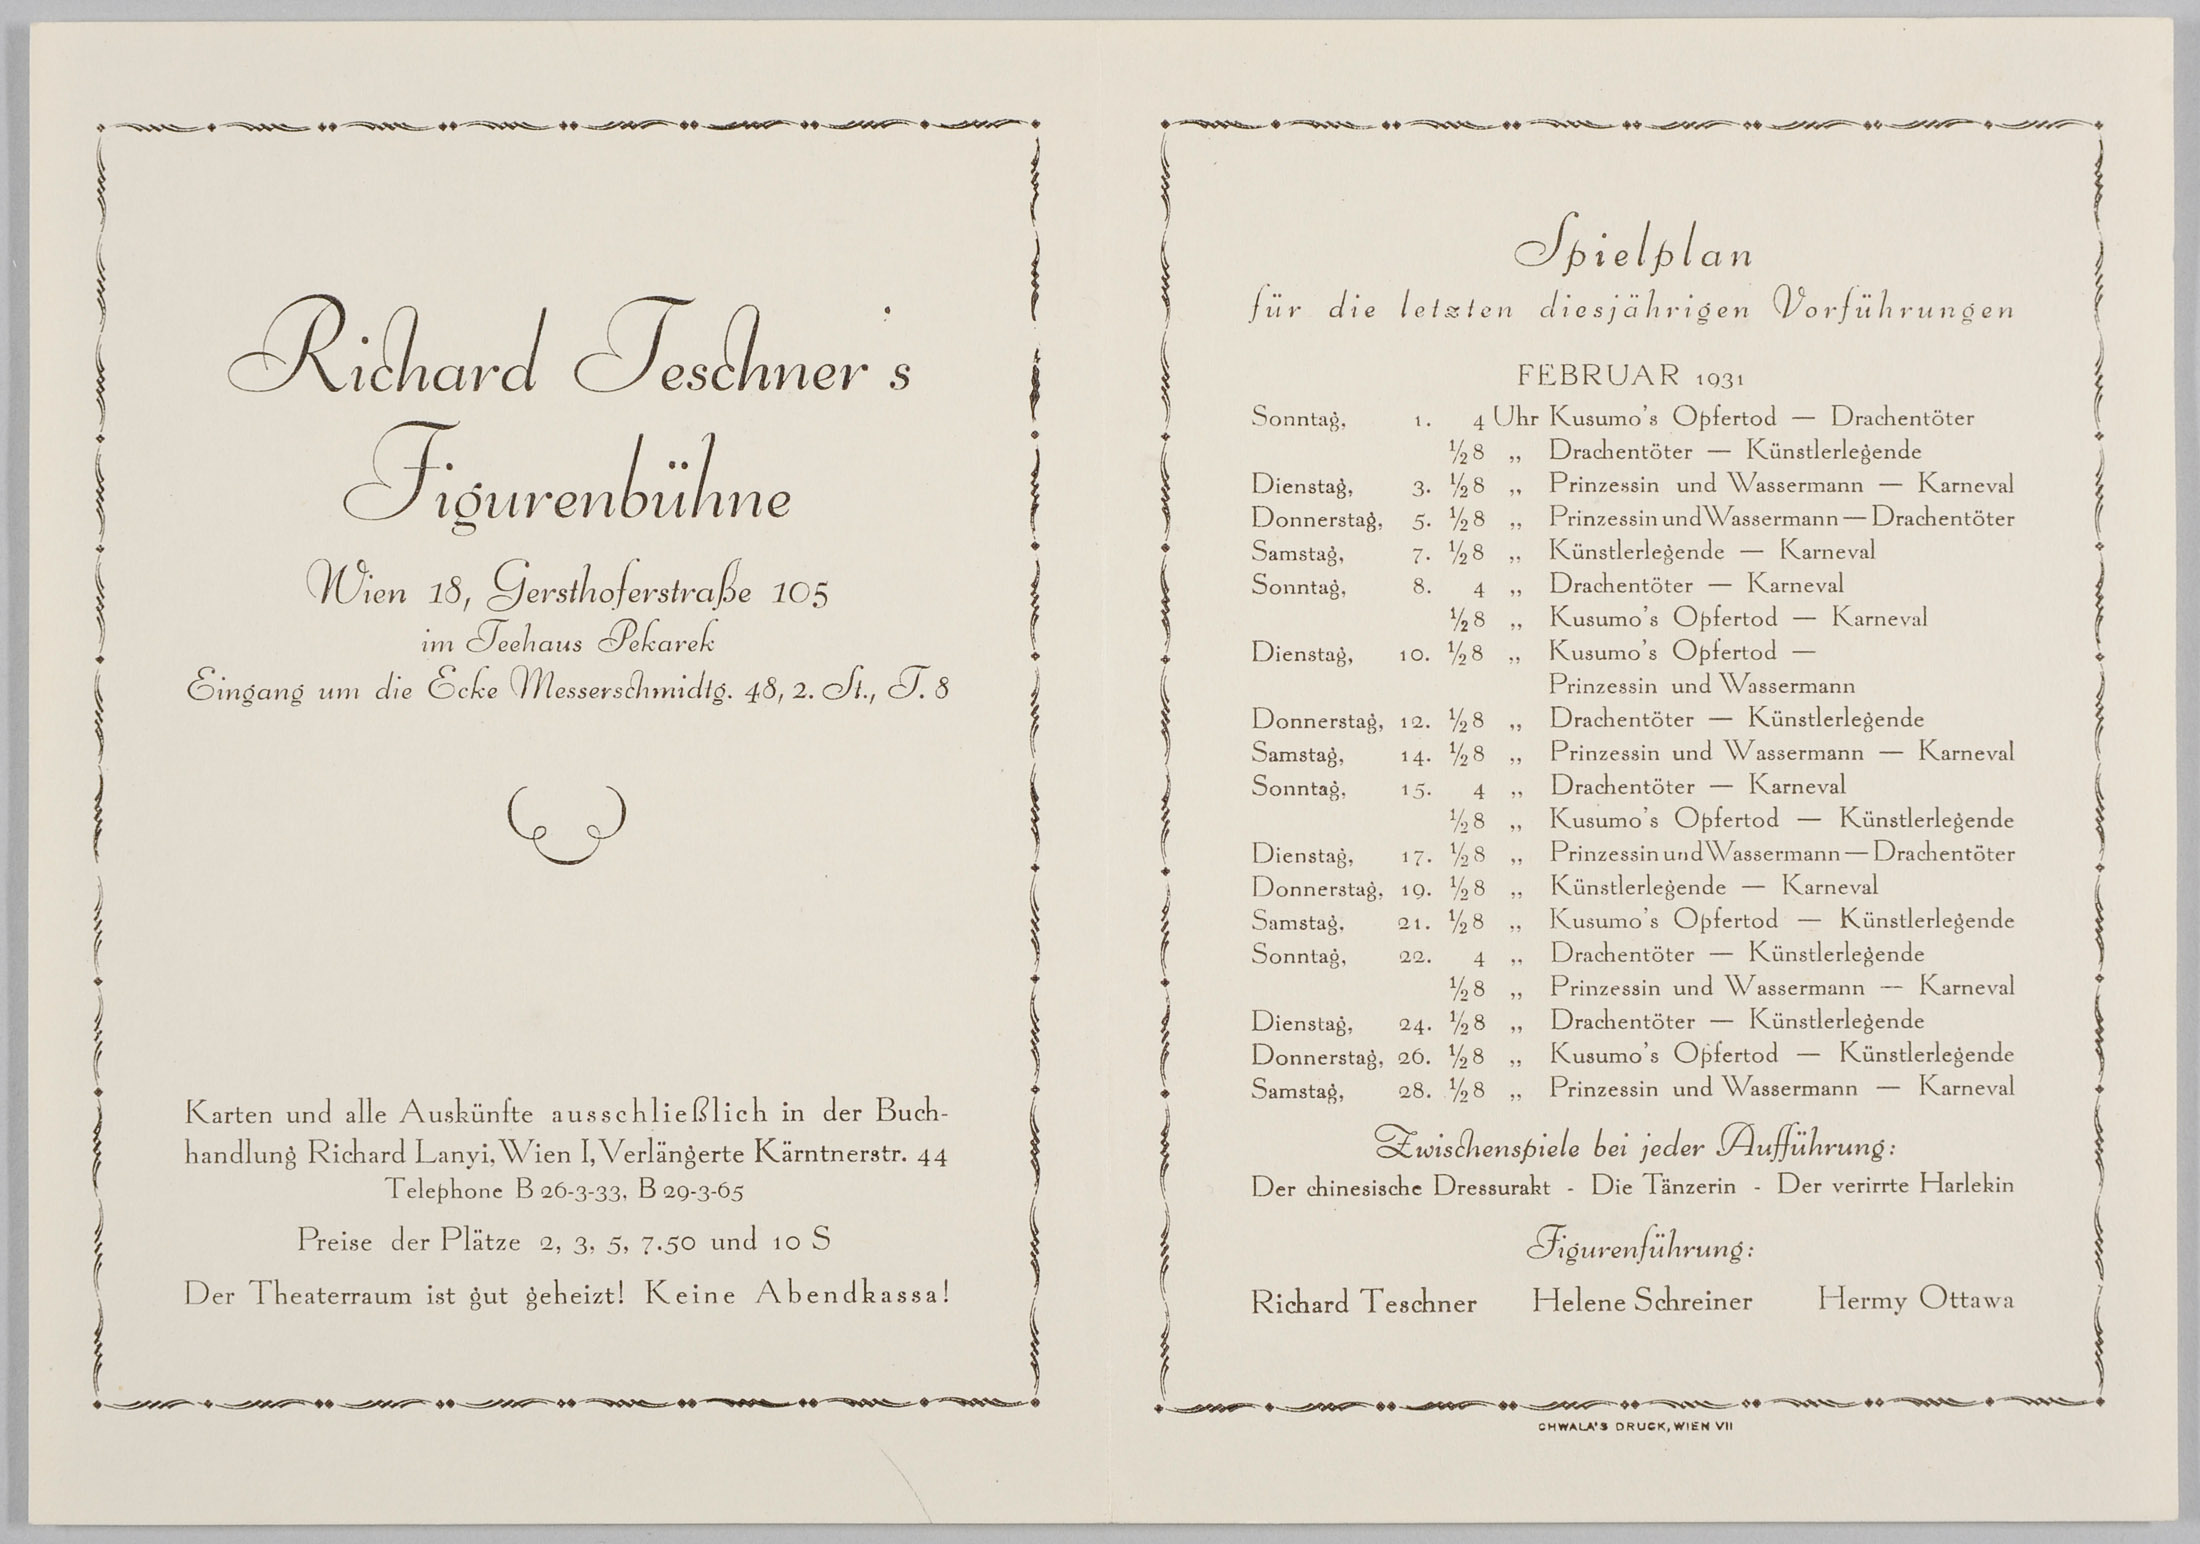 Richard Teschner's
Figurenbühne
Wien 18, Gersthoferstraße 105
im Teehaus Pekarek
Eingang um die Ecke Messerschmidtg. 48, 2. St., T. 8
Karten und alle Auskünfte ausschließlich in der Buch-
handlung Richard Lanyi, Wien I, Verlängerte Kärntnerstr. 44
Telephone B 26-3-33, B 29-3-65
Preise der Plätze 2, 3, 5, 7.50 und 10 S
Der Theaterraum ist gut geheizt! Keine Abendkassa!
Spielplan
für die letzten diesjährigen Vorführungen
FEBRUAR 1931
Sonntag, 1. 4 Uhr Kusumo's Opfertod — Drachentöter
½8 „ Drachentöter — Künstlerlegende
Dienstag, 3. ½8 „ Prinzessin und Wassermann — Karneval
Donnerstag, 5. ½8 „ Prinzessin und Wassermann — Drachentöter
Samstag, 7. ½8 „ Künstlerlegende — Karneval
Sonntag, 8. 4 „ Drachentöter — Karneval
½8 „ Kusumo's Opfertod — Karneval
Dienstag, 10. ½8 „ Kusumo's Opfertod —
Prinzessin und Wassermann
Donnerstag, 12. ½8 „ Drachentöter — Künstlerlegende
Samstag, 14. ½8 „ Prinzessin und Wassermann — Karneval
Sonntag, 15. 4 „ Drachentöter — Karneval
½8 „ Kusumo's Opfertod — Künstlerlegende
Dienstag, 17. ½8 „ Prinzessin und Wassermann — Drachentöter
Donnerstag, 19. ½8 „ Künstlerlegende — Karneval
Samstag, 21. ½8 „ Kusumo's Opfertod — Künstlerlegende
Sonntag, 22. 4 „ Drachentöter — Künstlerlegende
½8 „ Prinzessin und Wassermann — Karneval
Dienstag, 24. ½8 „ Drachentöter — Künstlerlegende
Donnerstag, 26. ½8 „ Kusumo's Opfertod — Künstlerlegende
Samstag, 28. ½8 „ Prinzessin und Wassermann — Karneval
Zwischenspiele bei jeder Aufführung:
Der chinesische Dressurakt - Die Tänzerin - Der verirrte Harlekin
Figurenführung:
Richard Teschner Helene Schreiner Hermy Ottawa
CHWALA'S DRUCK, WIEN VII